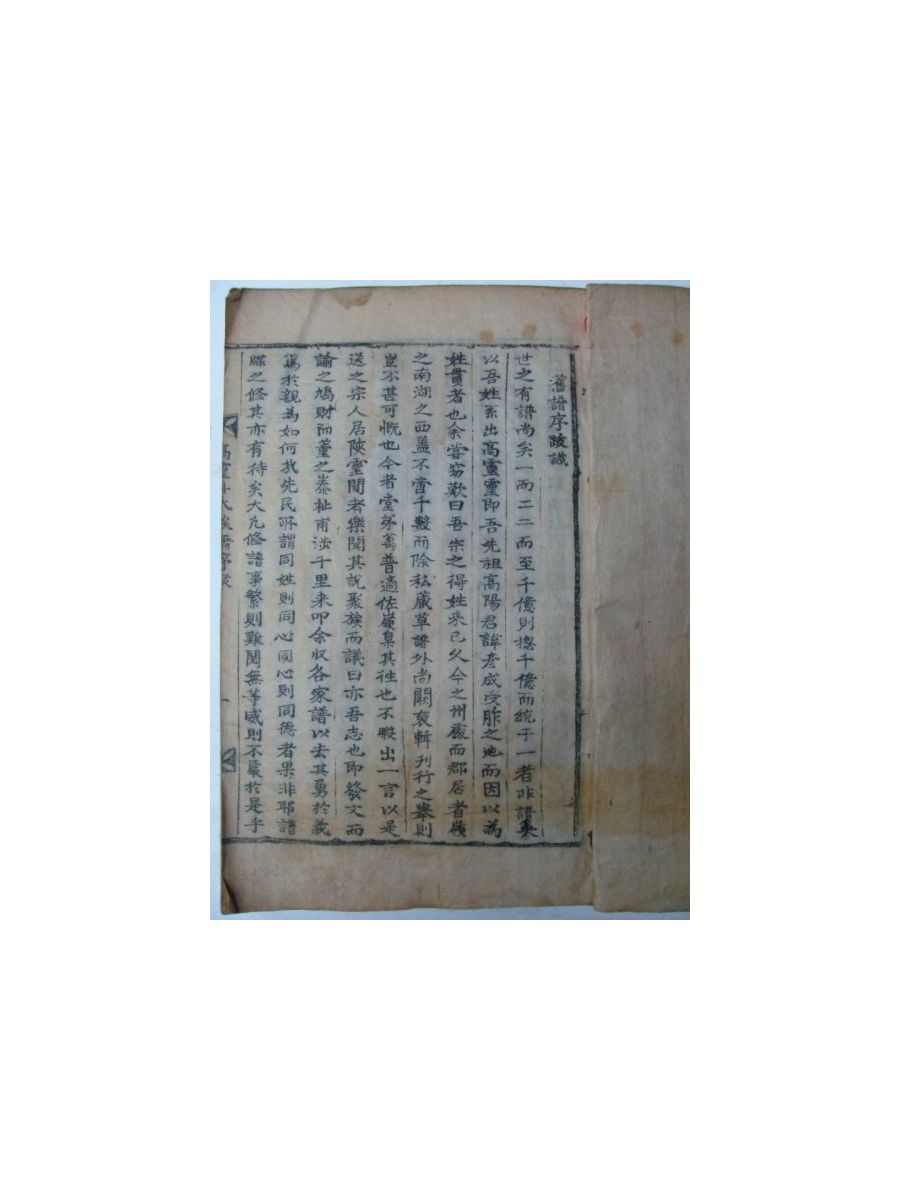 舊譜序跋識
世之有譜尚矣一而二二而至千億則摠千億而統于一者非譜奚
以吾姓系出高靈靈即吾先祖高陽君諱彦成受胙之地而因以為
姓貫者也余嘗窃歎曰吾宗之得姓来已久今之州處而郡居者嶺
之南湖之西盖不啻千數而除私藏草譜外尚闕裒輯刊行之擧則
豈不甚可慨也今者堂弟萬普適佐嶺臬其徃也不暇出一言以是
送之宗人居陜靈間者樂聞其說聚族而議曰亦吾志也即發文而
諭之鳩財而董之泰祉甫涉千里来叩余収各家譜以去其勇於義
篤於親為如何哉先民所謂同姓則同心同心則同德者果非耶譜
牒之修其亦有待矣大凢修譜事繁則難閱無等威則不嚴於是乎
高靈朴氏族譜序跋 一